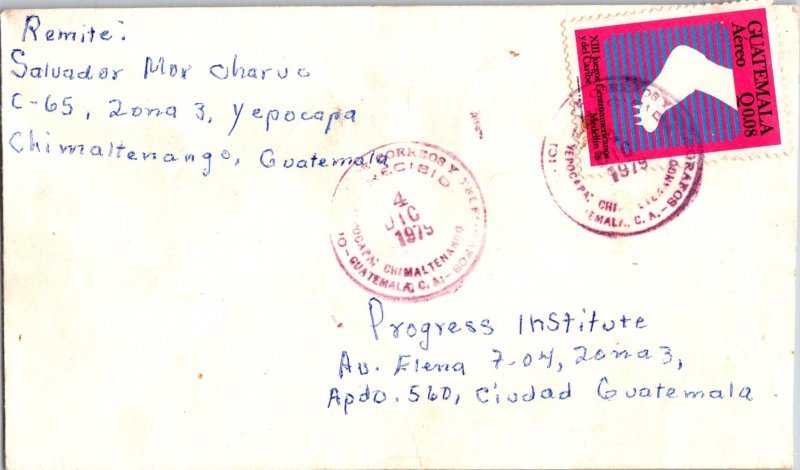 Remite:
Salvador Mox Charuc
C-65, Zona 3, Yepocapa
Chimaltenango, Guatemala
GUATEMALA
Aéreo
Q0.08
XIII Juegos Centroamericanos
y del Caribe
Medellín 78
CORREOS Y
RECIBIO
4
DIC
1979
YEPOCAPA; CHIMALTENANGO
GUATEMALA, C. A.
1979
YEPOCAPA; CHIMALTENANGO
GUATEMALA, C. A.
Progress Institute
Av. Elena 7-04, Zona 3,
Apdo. 560, Ciudad Guatemala.